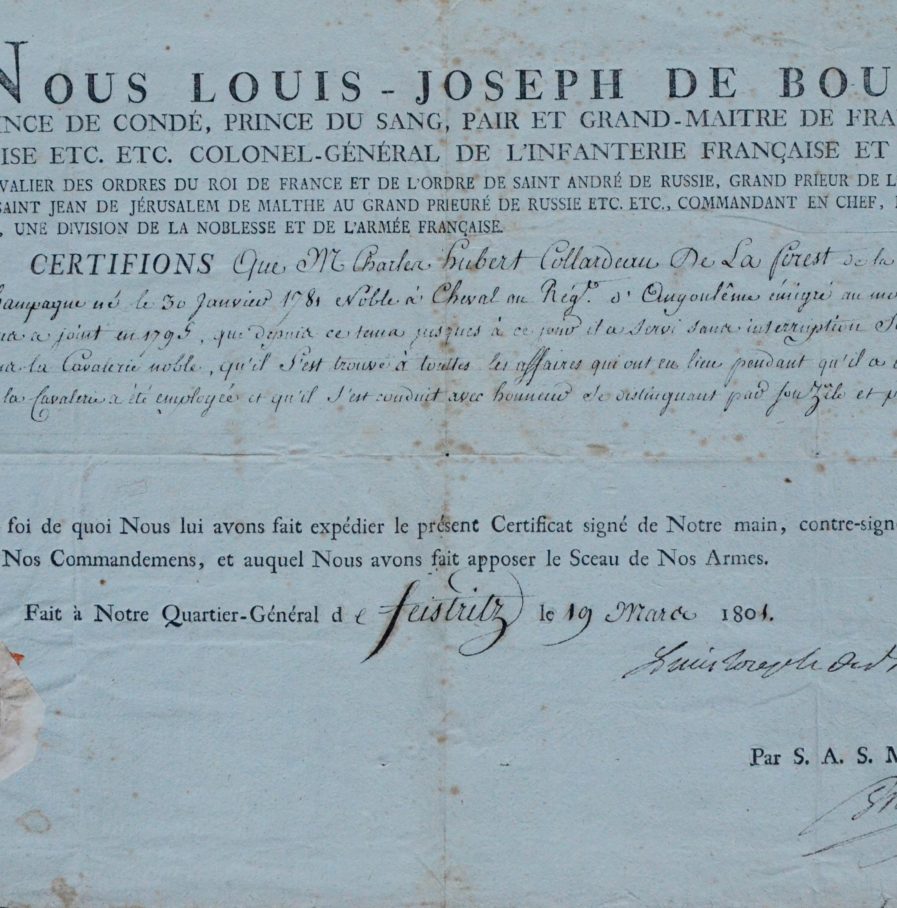 NOUS LOUIS-JOSEPH DE BOU
INCE DE CONDÉ, PRINCE DU SANG, PAIR ET GRAND-MAITRE DE FRA
ISE ETC. ETC. COLONEL-GÉNÉRAL DE L'INFANTERIE FRANÇAISE ET
VALIER DES ORDRES DU ROI DE FRANCE ET DE L'ORDRE DE SAINT ANDRÉ DE RUSSIE, GRAND PRIEUR DE L
SAINT JEAN DE JÉRUSALEM DE MALTHE AU GRAND PRIEURÉ DE RUSSIE ETC. ETC., COMMANDANT EN CHEF,
, UNE DIVISION DE LA NOBLESSE ET DE L'ARMÉE FRANÇAISE.
CERTIFIONS Que M Charles hubert Collardeau De La forest de la
Champagne né le 30 Janvier 1781 Noble à Cheval au Régt. d'Angoulême émigré au
a joint en 1795, que depuis ce tems jusques à ce jour il a servi sans interruption
la Cavalerie noble, qu'il s'est trouvé à touttes les affaires qui ont eu lieu pendant qu'il a
la Cavalerie a été employée et qu'il s'est conduit avec honneur se distinguant par son Zèle et
foi de quoi Nous lui avons fait expédier le présent Certificat signé de Notre main, contre-sign
Nos Commandemens, et auquel Nous avons fait apposer le Sceau de Nos Armes.
Fait à Notre Quartier-Général de feistritz le 19 Mars 1801.
Louis Joseph de
Par S. A. S. M